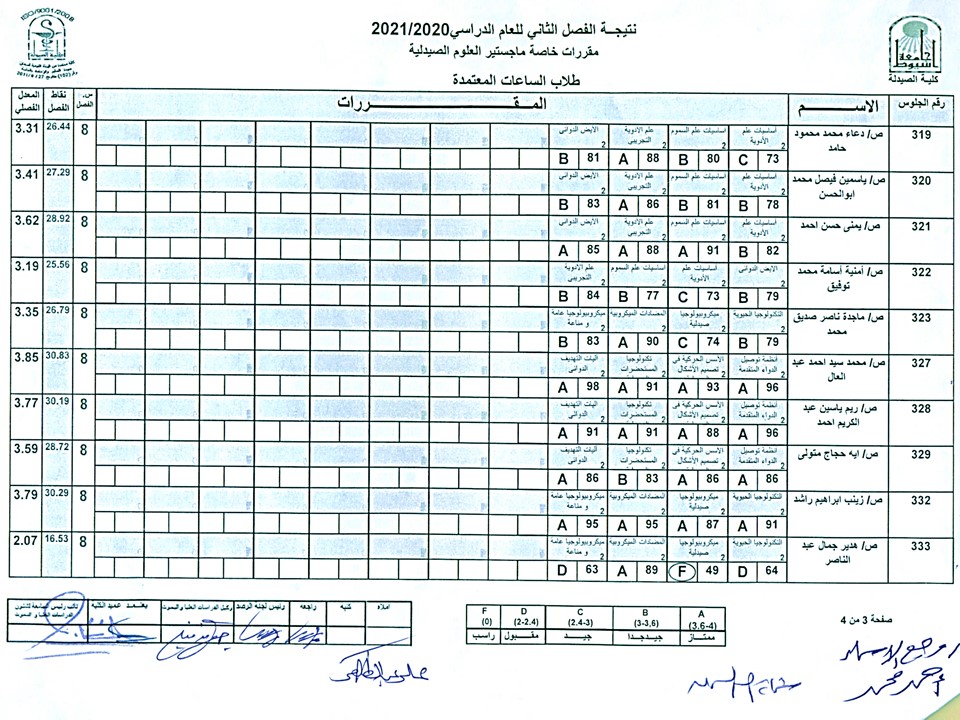 ISO/9001/2008
نتيجــة الفصل الثاني للعام الدراسي2021/2020
مقررات خاصة ماجستير العلوم الصيدلية
طلاب الساعات المعتمدة
كلية الصيدلة
رقم الجلوس الاســــم المقــــــررات س. الفصل نقاط الفصل المعدل الفصلي
319 ص/ دعاء محمد محمود حامد
أساسيات علم الأدوية 2 اساسيات علم السموم 2 علم الأدوية التجريبى 2 الايض الدوائى 2
73 C 80 B 88 A 81 B 8 26.44 3.31
320 ص/ ياسمين فيصل محمد ابوالحسن
أساسيات علم الأدوية 2 اساسيات علم السموم 2 علم الأدوية التجريبى 2 الايض الدوائى 2
78 B 81 B 86 A 83 B 8 27.29 3.41
321 ص/ يمنى حسن احمد
أساسيات علم الأدوية 2 اساسيات علم السموم 2 علم الأدوية التجريبى 2 الايض الدوائى 2
82 B 91 A 88 A 85 A 8 28.92 3.62
322 ص/ أمنية أسامة محمد توفيق
الايض الدوائى 2 أساسيات علم الأدوية 2 اساسيات علم السموم 2 علم الأدوية التجريبى 2
79 B 73 C 77 B 84 B 8 25.56 3.19
323 ص/ ماجدة ناصر صديق محمد
التكنولوجيا الحيوية 2 ميكروبيولوجيا صيدلية 2 المضادات الميكروبية 2 ميكروبيولوجيا عامة و مناعة 2
79 B 74 C 90 A 83 B 8 26.79 3.35
327 ص/ محمد سيد احمد عبد العال
أنظمة توصيل الدواء المتقدمة 2 الأسس الحركية في تصميم الأشكال 2 تكنولوجيا المستحضرات 2 اليات التهديف الدوائى 2
96 A 93 A 91 A 98 A 8 30.83 3.85
328 ص/ ريم ياسين عبد الكريم احمد
أنظمة توصيل الدواء المتقدمة 2 الأسس الحركية في تصميم الأشكال 2 تكنولوجيا المستحضرات 2 اليات التهديف الدوائى 2
96 A 88 A 91 A 91 A 8 30.19 3.77
329 ص/ ايه حجاج متولى
أنظمة توصيل الدواء المتقدمة 2 الأسس الحركية في تصميم الأشكال 2 تكنولوجيا المستحضرات 2 اليات التهديف الدوائى 2
86 A 86 A 83 B 86 A 8 28.72 3.59
332 ص/ زينب ابراهيم راشد
التكنولوجيا الحيوية 2 ميكروبيولوجيا صيدلية 2 المضادات الميكروبية 2 ميكروبيولوجيا عامة و مناعة 2
91 A 87 A 95 A 95 A 8 30.29 3.79
333 ص/ هدير جمال عبد الناصر
التكنولوجيا الحيوية 2 ميكروبيولوجيا صيدلية 2 المضادات الميكروبية 2 ميكروبيولوجيا عامة و مناعة 2
64 D 49 F 89 A 63 D 8 16.53 2.07
صفحة 3 من 4
A (3.6-4) B (3-3,6) C (2.4-3) D (2-2.4) F (0)
ممتــاز جيــدجــدا جيـــد مقــبول راسب
املاه كتبه راجعه رئيس لجنة الرصد وكيل الدراسات العليا والبحوث يعتمــد عميد الكليه